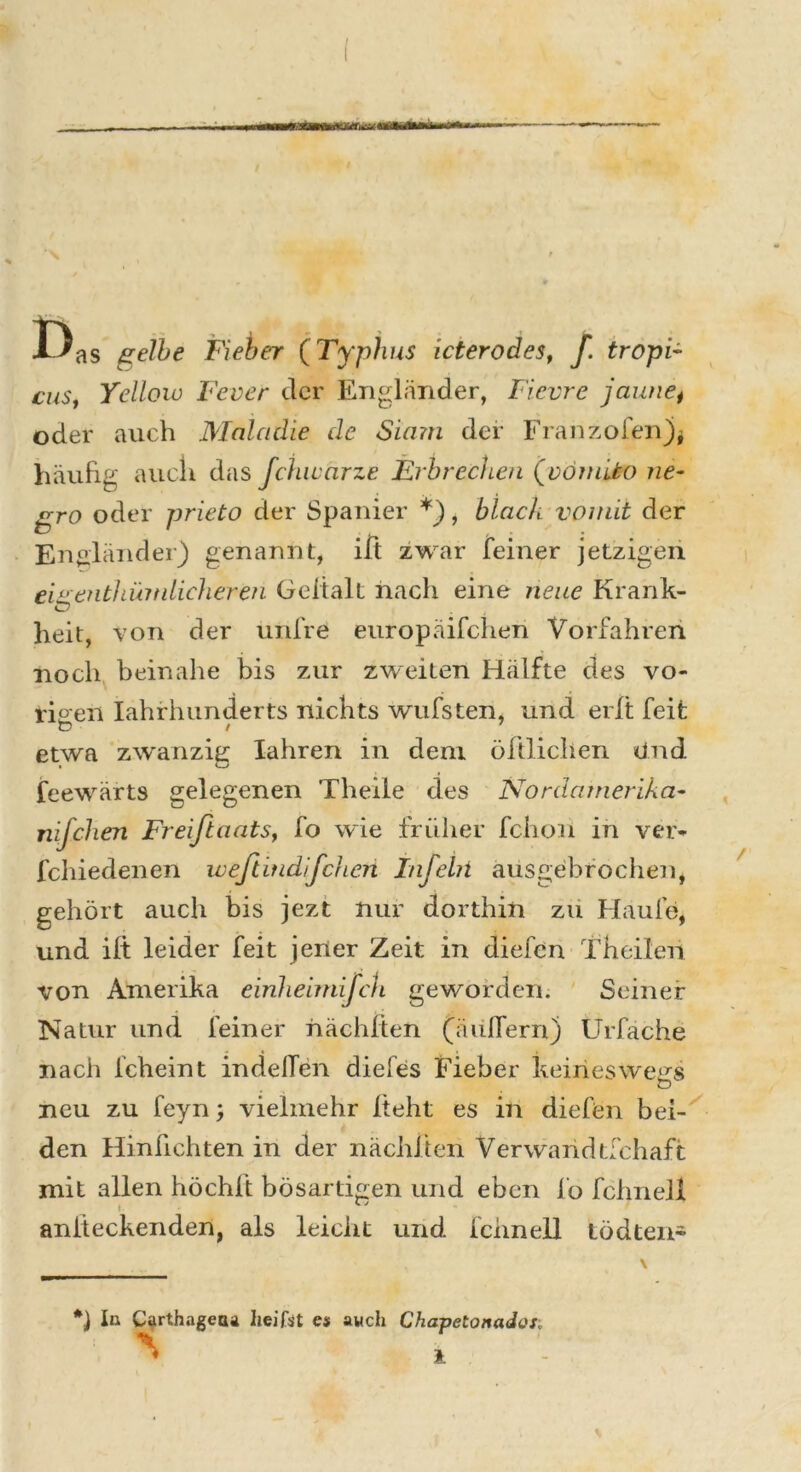 Das gelbe Fieber (Typhus icterodes, ſ. tropi-
cus, Yellow Fever der Engländer, Fievre jaune,
oder auch Maladie de Siam der Franzoſen),
häufig auch das ſchwarze Erbrechen (vomito ne-
gro oder prieto der Spanier *), black vomit der
Engländer) genannt, iſt zwar ſeiner jetzigen
eigenthümlicheren Geſtalt nach eine neue Krank-
heit, von der unſre europäiſchen Vorfahren
noch beinahe bis zur zweiten Hälfte des vo-
rigen Iahrhunderts nichts wuſsten, und erſt ſeit
etwa zwanzig Iahren in dem öſtlichen und
ſeewärts gelegenen Theile des Nordamerika-
niſchen Freiſtaats, ſo wie früher ſchon in ver-
ſchiedenen weſtindiſchen Inſeln ausgebrochen,
gehört auch bis jezt nur dorthin zu Hauſe,
und iſt leider ſeit jener Zeit in dieſen Theilen
von Amerika einheimiſch geworden. Seiner
Natur und ſeiner nächſten (äuſſern) Urſache
nach ſcheint indeſſen dieſes Fieber keinesweges
neu zu ſeyn; vielmehr ſteht es in dieſen bei-
den Hinſichten in der nächſten Verwandtſchaft
mit allen höchſt bösartigen und eben ſo ſchnell
anſteckenden, als leicht und ſchnell tödten-
*) In Carthagena heiſst es auch Chapetonados.
1